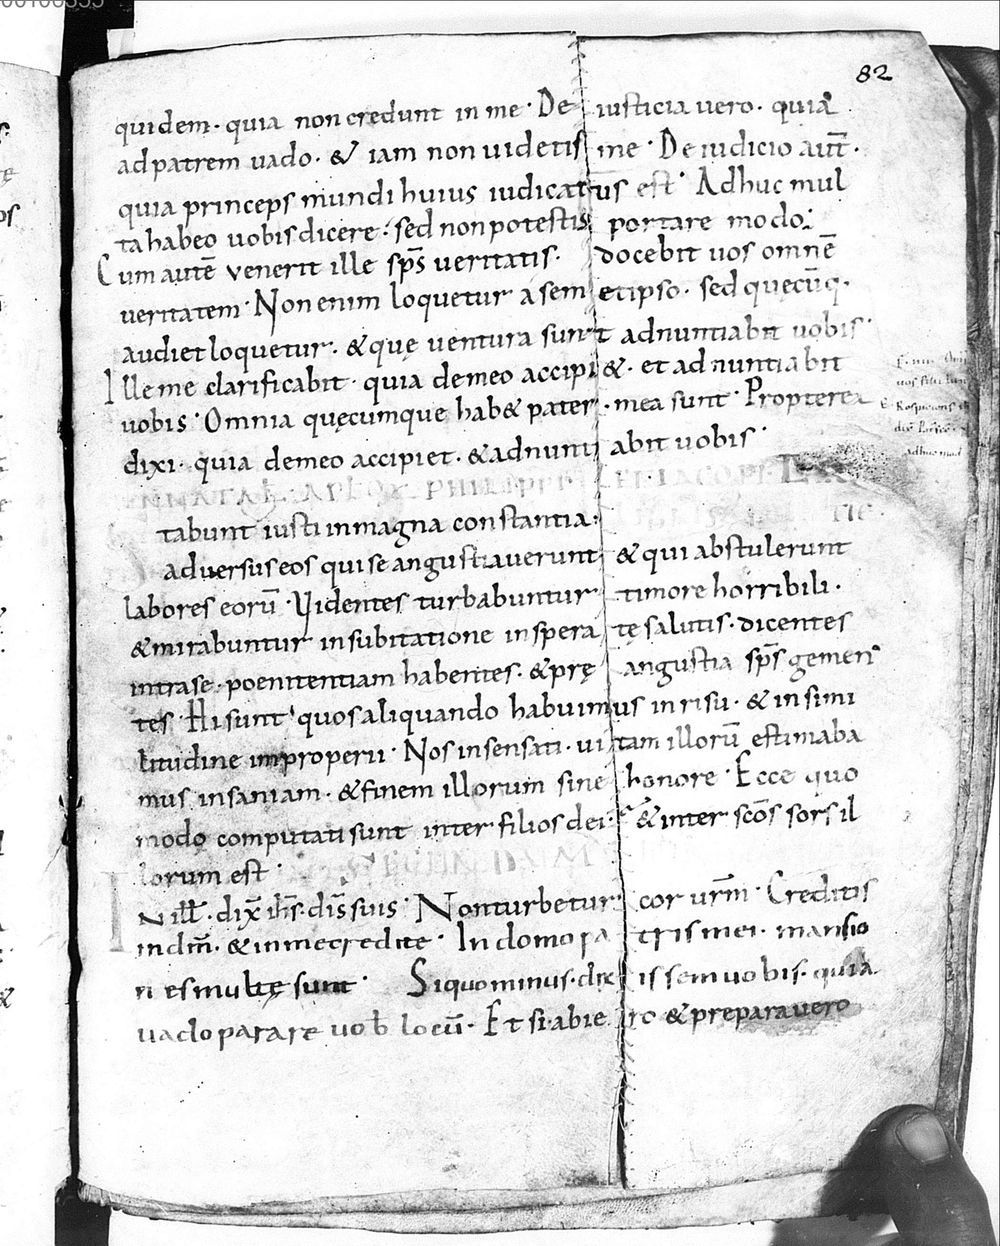 82
quidem· quia non credunt in me· De iusticia uero· quia
ad patrem uado· & iam non uidetis me· De iudicio aut̄·
quia princeps mundi huius iudicatus est· Adhuc mul
ta habeo uobis dicere· sed non potestis portare modo·
Cum autē venerit ille sp̄s ueritatis· docebit uos omnē
veritatem· Non enim loquetur a semetipso· sed quęcūq·
audiet loquetur· & quę uentura sunt adnuntiabit uobis·
Ille me clarificabit· quia de meo accipi&· et adnuntiabit
uobis· Omnia quęcumque hab& pater· mea sunt· Propterea
dixi· quia de meo accipiet· & adnunti abit uobis·
PHILIPPI ET IACOPI
tabunt iusti in magna constantia·
aduersus eos qui se angustiaverunt & qui abstulerunt
labores eorū· Videntes turbabuntur timore horribili·
& mirabuntur in subitatione insperatę salutis· dicentes
intra se· poenitentiam habentes· & prę angustia sp̄s gemen
tes· Hi sunt quos aliquando habuimus in risu· & in simi
litudine improperii· Nos insensati· uitam illorū estimaba
mus insaniam· & finem illorum sine honore· Ecce quo
modo computati sunt inter filios dei· & inter sc̄os sors il
lorum est·
dix̄ ih̄s· dis̄ suis· Non turbetur cor ur̄m· Creditis
in dm̄· & in me credite· In domo patris mei· mansio
nes multę sunt· Siquo minus· dixissem uobis· quia
vado parare uob̄ locū· Et si abiero & preparavero